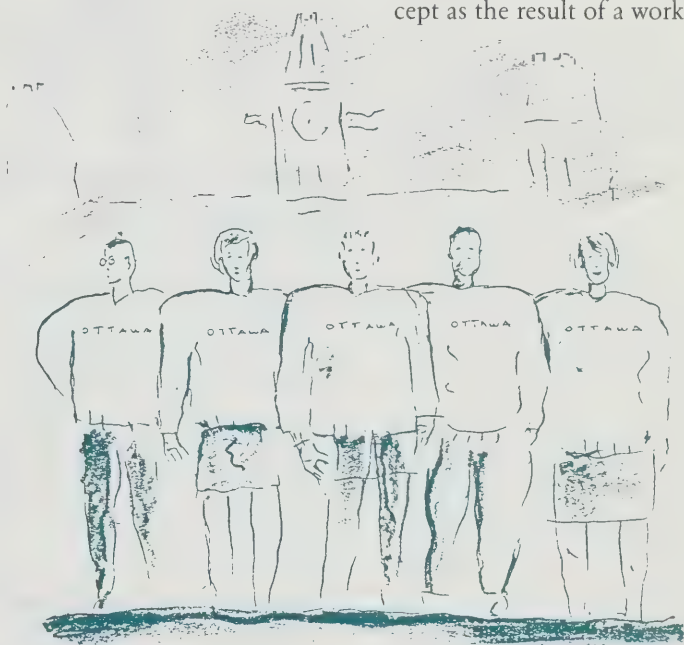 cept as the result of a work
OTTAWA OTTAWA OTTAWA OTTAWA OTTAWA